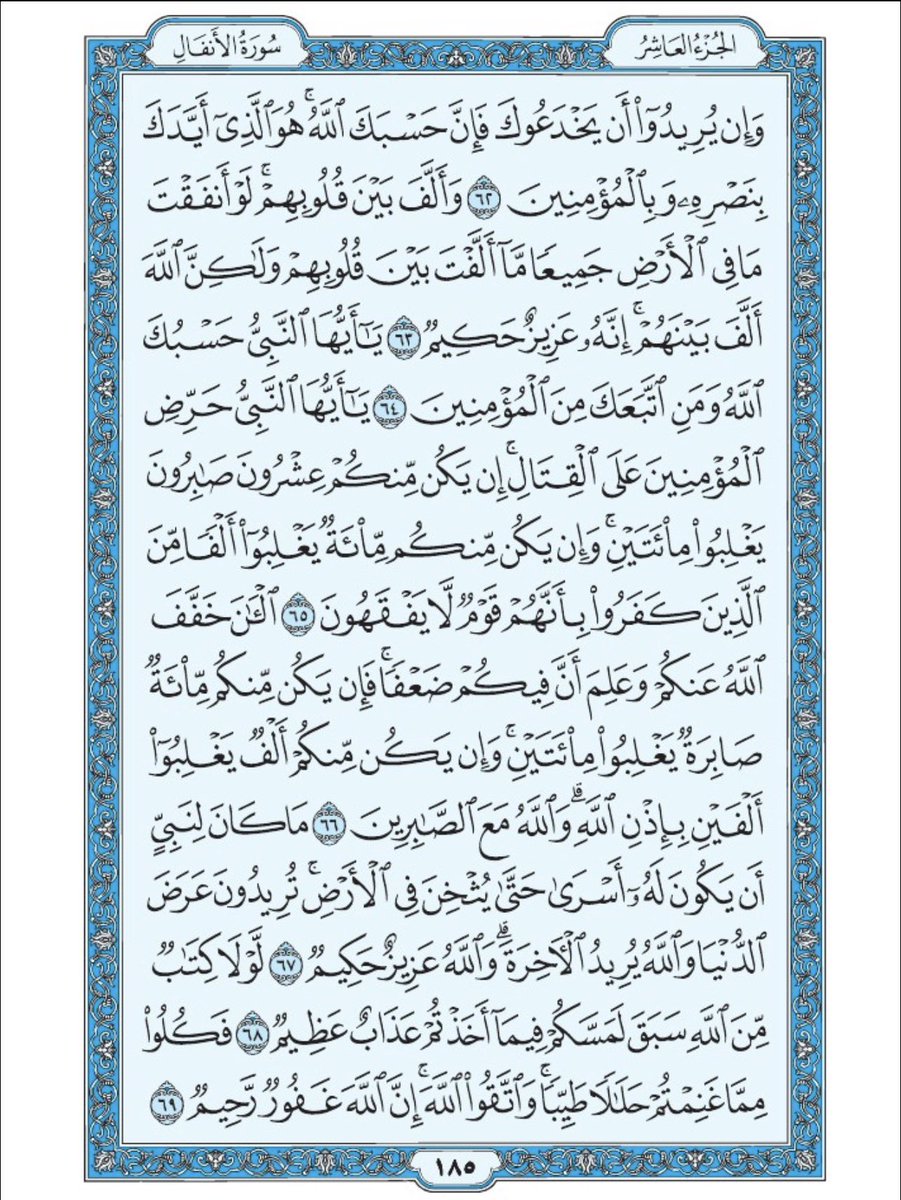 الجزء العاشر
سورة الأنفال
وَإِن يُرِيدُوٓا۟ أَن يَخْدَعُوكَ فَإِنَّ حَسْبَكَ ٱللَّهُ ۚ هُوَ ٱلَّذِىٓ أَيَّدَكَ
بِنَصْرِهِۦ وَبِٱلْمُؤْمِنِينَ ٦٢ وَأَلَّفَ بَيْنَ قُلُوبِهِمْ ۚ لَوْ أَنفَقْتَ
مَا فِى ٱلْأَرْضِ جَمِيعًا مَّآ أَلَّفْتَ بَيْنَ قُلُوبِهِمْ وَلَـٰكِنَّ ٱللَّهَ
أَلَّفَ بَيْنَهُمْ ۚ إِنَّهُۥ عَزِيزٌ حَكِيمٌ ٦٣ يَـٰٓأَيُّهَا ٱلنَّبِىُّ حَسْبُكَ
ٱللَّهُ وَمَنِ ٱتَّبَعَكَ مِنَ ٱلْمُؤْمِنِينَ ٦٤ يَـٰٓأَيُّهَا ٱلنَّبِىُّ حَرِّضِ
ٱلْمُؤْمِنِينَ عَلَى ٱلْقِتَالِ ۚ إِن يَكُن مِّنكُمْ عِشْرُونَ صَـٰبِرُونَ
يَغْلِبُوا۟ مِا۟ئَتَيْنِ ۚ وَإِن يَكُن مِّنكُم مِّا۟ئَةٌ يَغْلِبُوٓا۟ أَلْفًا مِّنَ
ٱلَّذِينَ كَفَرُوا۟ بِأَنَّهُمْ قَوْمٌ لَّا يَفْقَهُونَ ٦٥ ٱلْـَٔـٰنَ خَفَّفَ
ٱللَّهُ عَنكُمْ وَعَلِمَ أَنَّ فِيكُمْ ضَعْفًا ۚ فَإِن يَكُن مِّنكُم مِّا۟ئَةٌ
صَابِرَةٌ يَغْلِبُوا۟ مِا۟ئَتَيْنِ ۚ وَإِن يَكُن مِّنكُمْ أَلْفٌ يَغْلِبُوٓا۟
أَلْفَيْنِ بِإِذْنِ ٱللَّهِ ۗ وَٱللَّهُ مَعَ ٱلصَّـٰبِرِينَ ٦٦ مَا كَانَ لِنَبِىٍّ
أَن يَكُونَ لَهُۥٓ أَسْرَىٰ حَتَّىٰ يُثْخِنَ فِى ٱلْأَرْضِ ۚ تُرِيدُونَ عَرَضَ
ٱلدُّنْيَا وَٱللَّهُ يُرِيدُ ٱلْـَٔاخِرَةَ ۗ وَٱللَّهُ عَزِيزٌ حَكِيمٌ ٦٧ لَّوْلَا كِتَـٰبٌ
مِّنَ ٱللَّهِ سَبَقَ لَمَسَّكُمْ فِيمَآ أَخَذْتُمْ عَذَابٌ عَظِيمٌ ٦٨ فَكُلُوا۟
مِمَّا غَنِمْتُمْ حَلَـٰلًا طَيِّبًا ۚ وَٱتَّقُوا۟ ٱللَّهَ ۚ إِنَّ ٱللَّهَ غَفُورٌ رَّحِيمٌ ٦٩
١٨٥